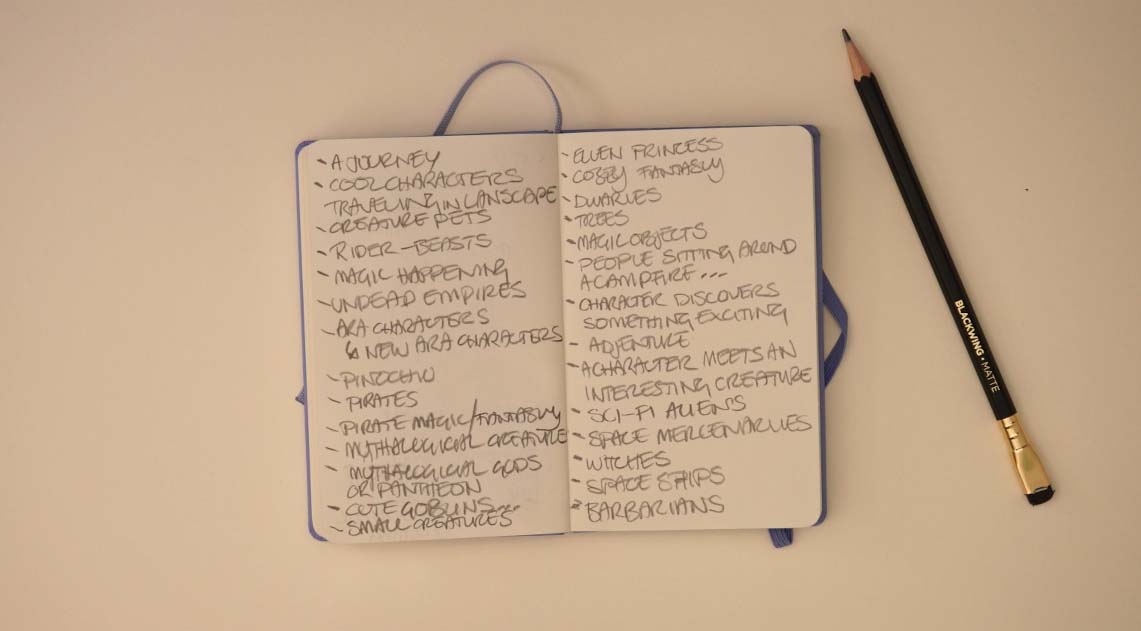 - A JOURNEY
- COOL CHARACTERS
TRAVELING IN LANSCAPE
- CREATURE PETS
- RIDER-BEASTS
- MAGIC HAPPENING
- UNDEAD EMPIRES
- ARA CHARACTERS
& NEW ARA CHARACTERS
- PINOCHIO
- PIRATES
- PIRATE MAGIC/FANTASY
- MYTHALOGICIAL CREATURE
- MYTHALOGICIAL GODS
OR PANTHEON
- CUTE GOBLINS...
- SMALL CREATURES
- ELVEN PRINCESS
- COZEY FANTASY
- DWARVES
- TREES
- MAGIC OBJECTS
- PEOPLE SITTING AROUND
A CAMPFIRE...
- CHARACTER DISCOVERS
SOMETHING EXCITING
- ADVENTURE
- A CHARACTER MEETS AN
INTERESTING CREATURE
- SCI-FI ALIENS
- SPACE MERCENARIES
- WITCHES
- SPACE SHIPS
- BARBARIANS
BLACKWING • MATTE